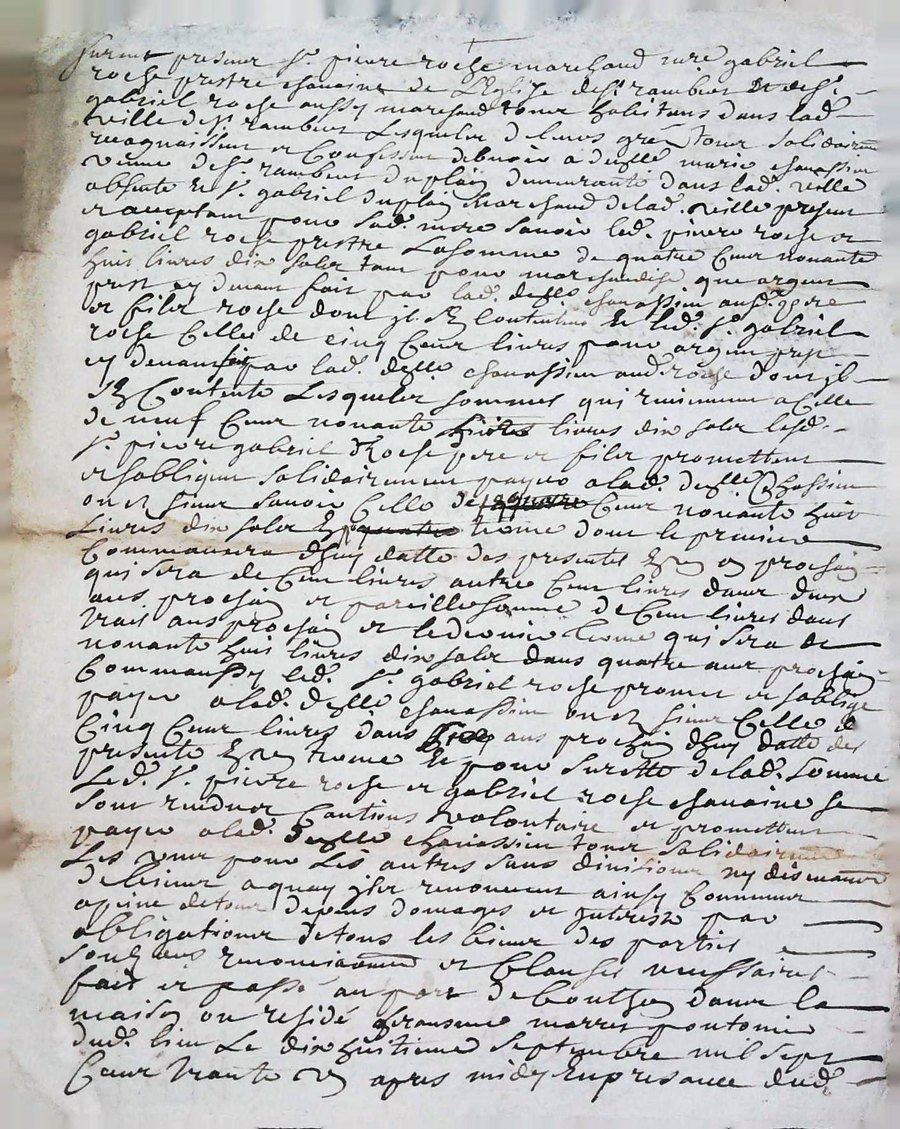 furent presens Sr. pierre roche marchand mre gabriel
roche prestre chanoine de L'Eglise de st. rambert Et sr.
gabriel roche aussy marchand tous habitans dans lad.
ville de st. rambert Lesquels de leurs grés tous solidairemt
recognaissent et Confessent debvoir a delle marie chanassieu
veuve de st. rambert duplay demeurante dans lad. ville
absente Et Sr. gabriel duplay Marchand de lad. ville present
et acceptant pour sad. mere Savoir led. pierre roche et
gabriel roche prestre La somme de quatre Cens nonante
huit livres dix solz tant pour marchandise que argent
prest cy devant fait par lad. delle chanassieu ausd. pere
et filz roche dont ilz Contentent Et led. Sr. gabriel
roche Celle de cinq Cens livres pour argent prest
cy devant fait par lad. delle chanassieu aud. roche dont il
Contente Lesquelles sommes qui reviennent a Celle
de neuf Cens nonante livres dix solz lesd.
Sr. pierre gabriel Roche pere et filz promettent
et sobligent solidairement payer a lad. delle Chassieu
ou es siens Savoir Celle de quatre Cens nonante huit
Livres dix solz En quatre terme dont le premier
Commancera dhuy datte des presentes En un an prochain
qui sera de Cent livres autre Cent livres dans deux
ans prochain et pareille somme de Cent livres dans
trois ans prochain et le dernier terme qui sera de
nonante huit livres dix solz dans quatre ans prochain
Comme aussy led. Sr. gabriel roche promet et soblige
payer a lad. delle chanassieu ou es siens Celle de
Cinq Cens livres dans ans prochain dhuy datte des
presente En un terme Et pour surette de lad. somme
Led. Sr. pierre roche et gabriel roche chanoine se
sont rendues Cautions volontaire et promettent
payer a lad. delle chanassieu tous solidairement
Les uns pour Les autres sans division ny discution
de biens a quoy ilz renoncent ainsy Convenu
a peine de tous depens domages et interestz par
obligations de tous les biens des parties
soubz avec renonciations et Clauses necessaires
fait et passé au port de bouthon dans la
maison ou reside marres pontonier
dud. lieu Le dix huitieme septembre mil sept
Cens trante un apres midy En presance dud.